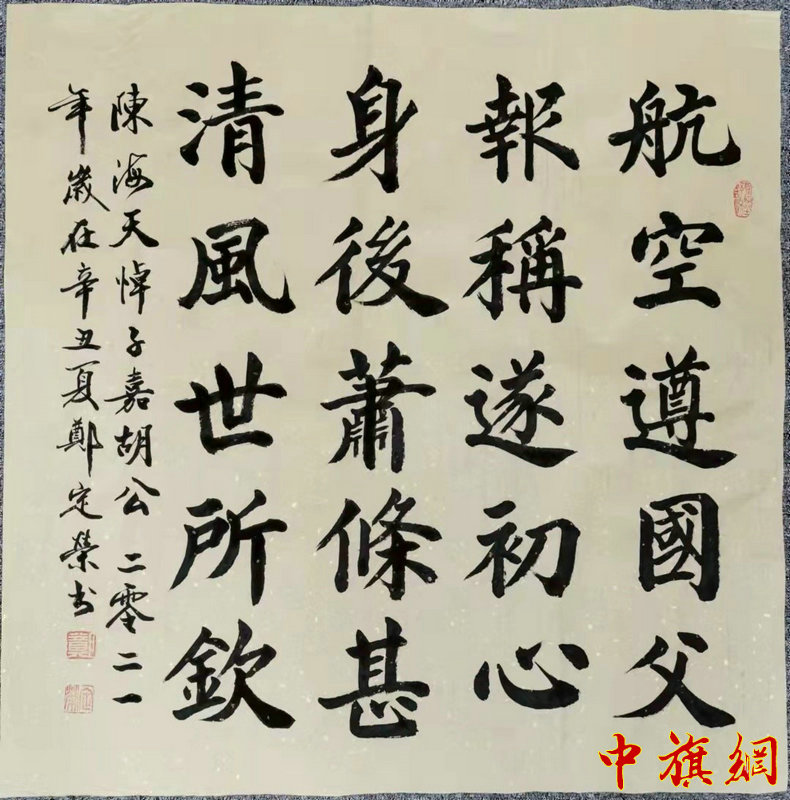 航空遵國父
報稱遂初心
身後蕭條甚
清風世所欽
陳海天悼子嘉胡公 二零二一
年歲在辛丑夏鄭定榮书
中旗網